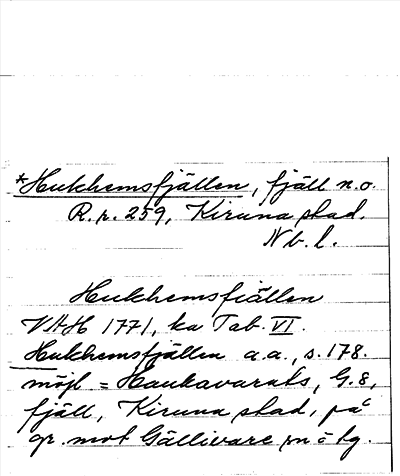 *Hukhemsfjällen, fjäll n.o.
R.r. 259, Kiruna stad.
Nb. l.
Hukhemsfiällen
VAH 1771, ka Tab. VI.
Hukhemsfjällen a.a., s. 178.
möjl = Haukavarats, G.8,
fjäll, Kiruna stad, på
gr. mot Gällivare sn o tg.